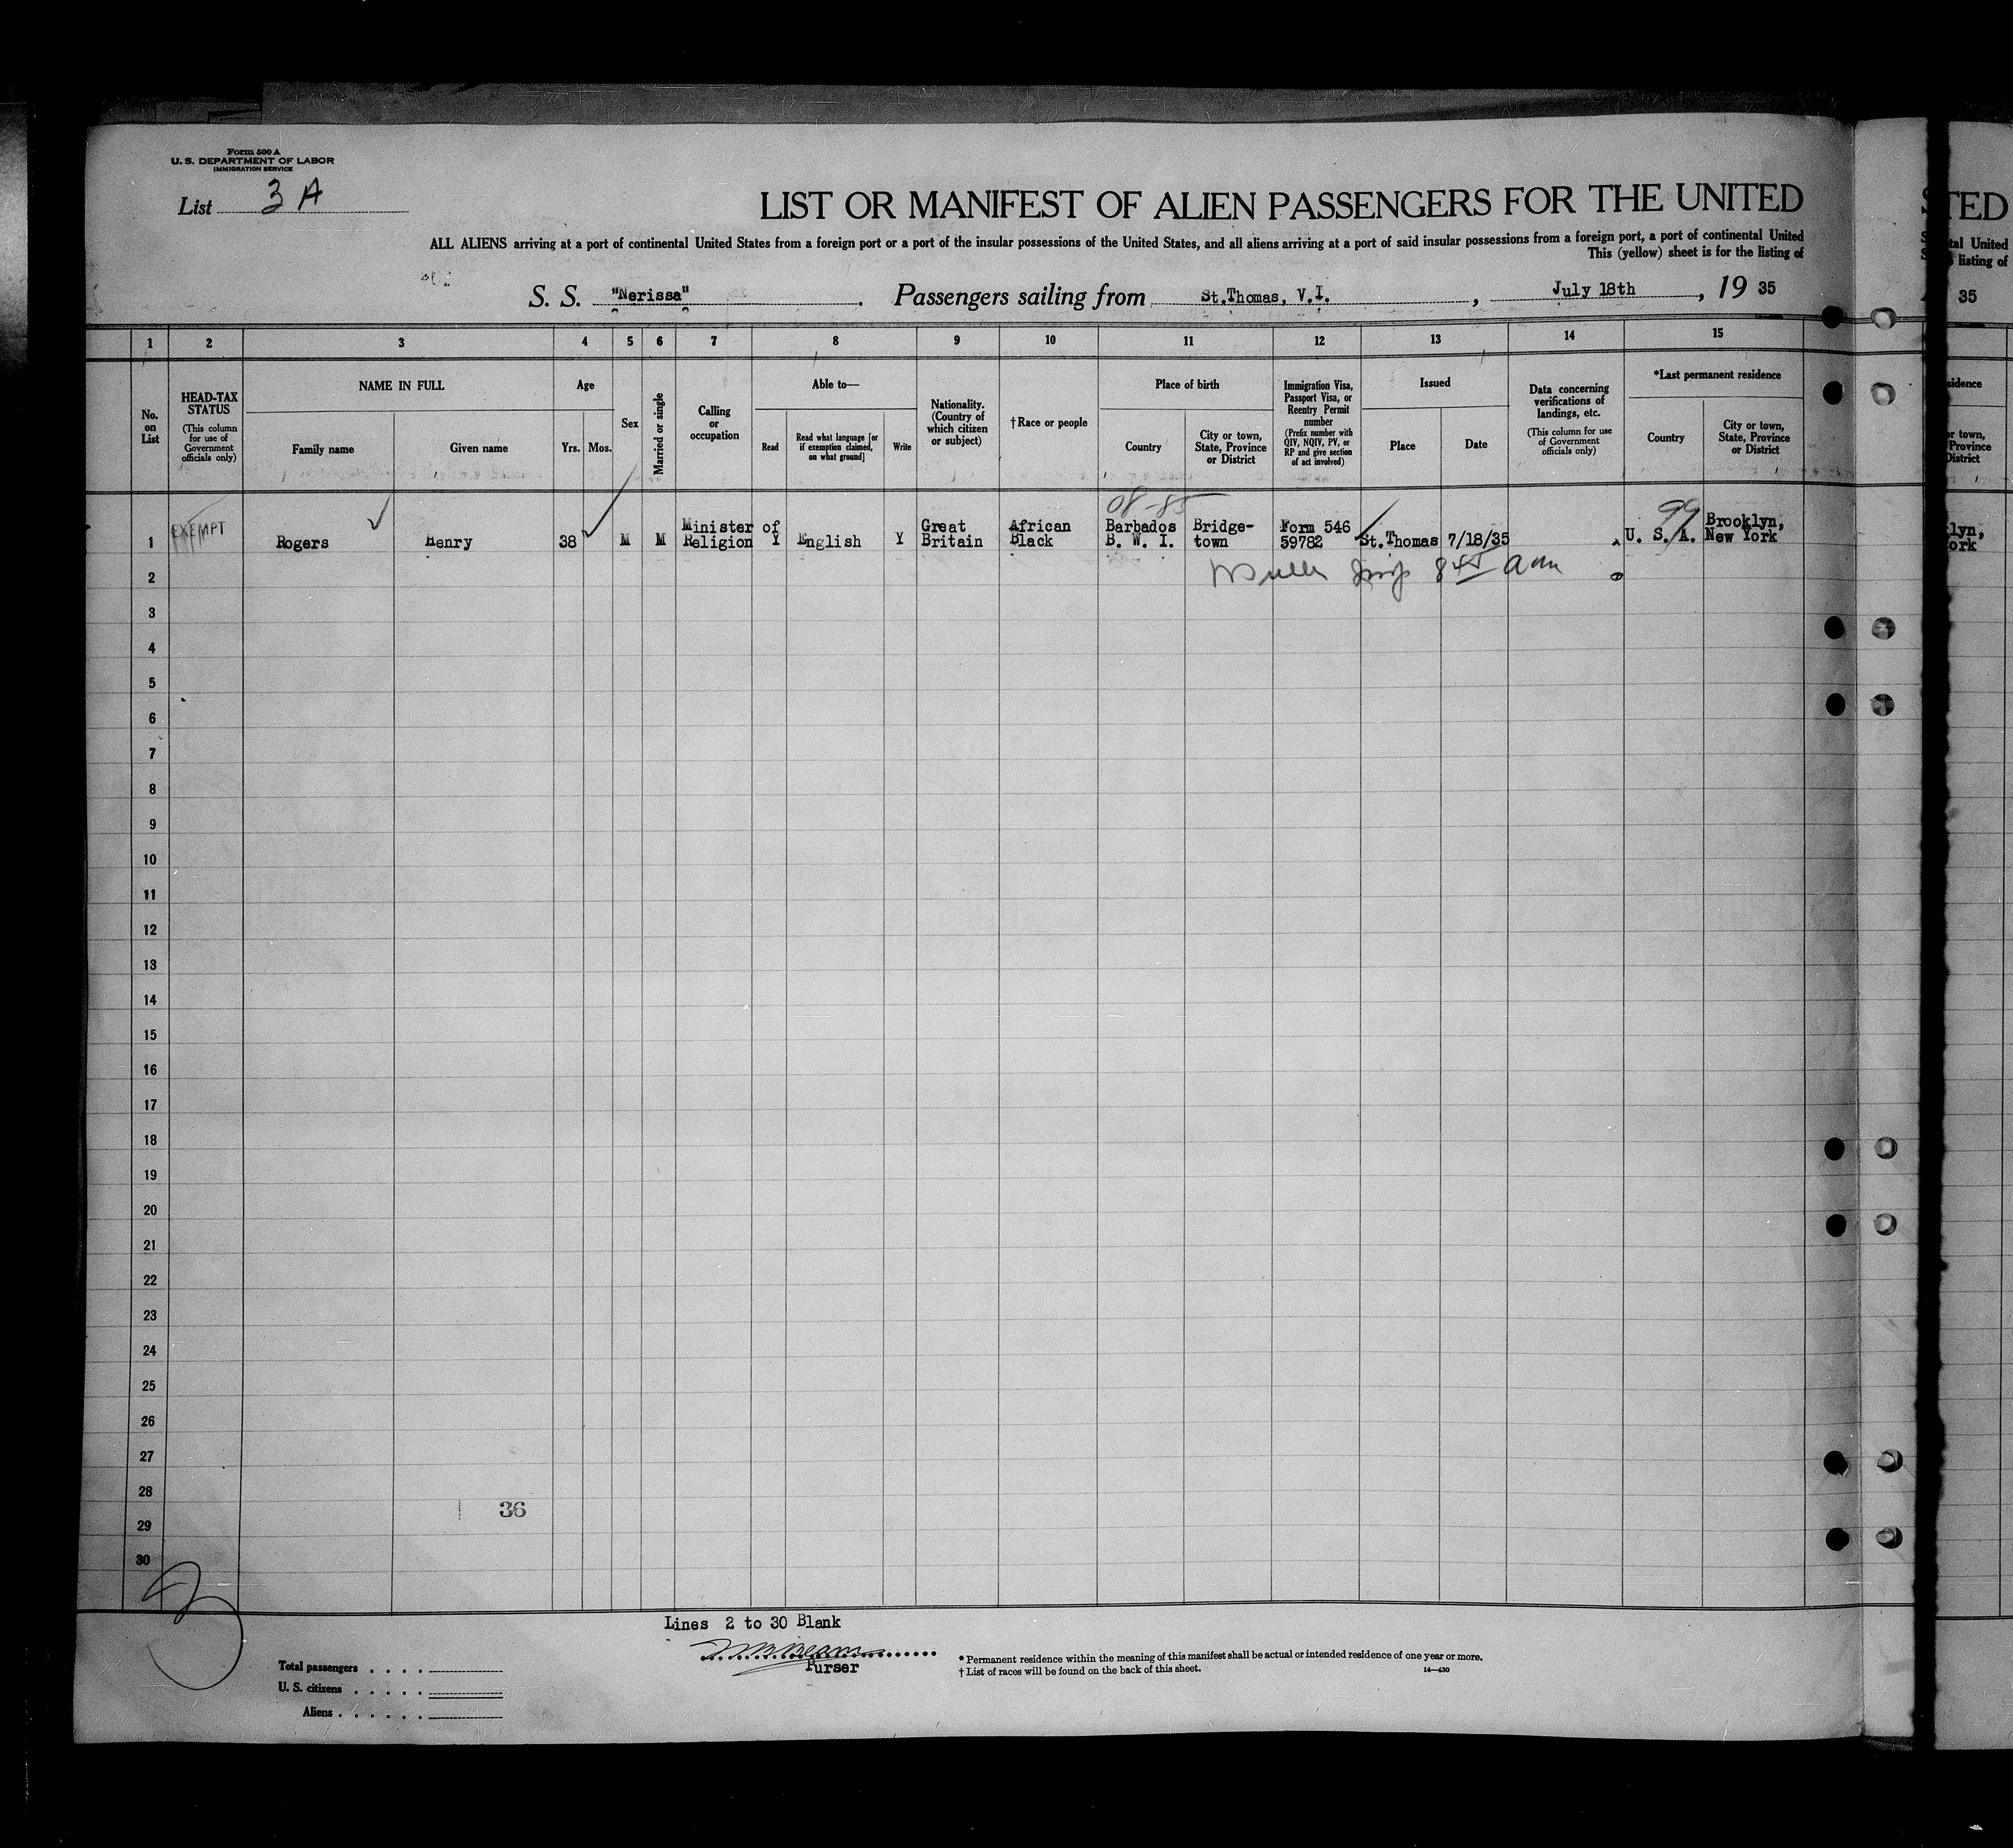 Form 500 A
U. S. DEPARTMENT OF LABOR
IMMIGRATION SERVICE
List 3 A
LIST OR MANIFEST OF ALIEN PASSENGERS FOR THE UNITED
ALL ALIENS arriving at a port of continental United States from a foreign port or a port of the insular possessions of the United States, and all aliens arriving at a port of said insular possessions from a foreign port, a port of continental United
This (yellow) sheet is for the listing of
S. S. "Nerissa" . Passengers sailing from St.Thomas, V.I. , July 18th , 19 35
1 2 3 4 5 6 7 8 9 10 11 12 13 14 15
No. on List
HEAD-TAX STATUS (This column for use of Government officials only)
NAME IN FULL
Family name Given name
Age
Yrs. Mos.
Sex
Married or single
Calling or occupation
Able to—
Read Read what language [or if exemption claimed, on what ground] Write
Nationality. (Country of which citizen or subject)
†Race or people
Place of birth
Country City or town, State, Province or District
Immigration Visa, Passport Visa, or Reentry Permit number (Prefix number with QIV, NQIV, PV, or RP and give section of act involved)
Issued
Place Date
Data concerning verifications of landings, etc. (This column for use of Government officials only)
*Last permanent residence
Country City or town, State, Province or District
08-85 99
1 EXEMPT Rogers Henry 38 M M Minister of Religion Y English Y Great Britain African Black Barbados B. W. I. Bridge-town Form 546 59782 St.Thomas 7/18/35 U. S. A. Brooklyn, New York
2 8 45 am
3
4
5
6
7
8
9
10
11
12
13
14
15
16
17
18
19
20
21
22
23
24
25
26
27
28
36
29
30
Lines 2 to 30 Blank
Purser
Total passengers . . . .
U. S. citizens . . . . .
Aliens . . . . . .
* Permanent residence within the meaning of this manifest shall be actual or intended residence of one year or more.
† List of races will be found on the back of this sheet.
14—430
TED
tal United
listing of
35
sidence
or town,
Province
District
lyn,
ork